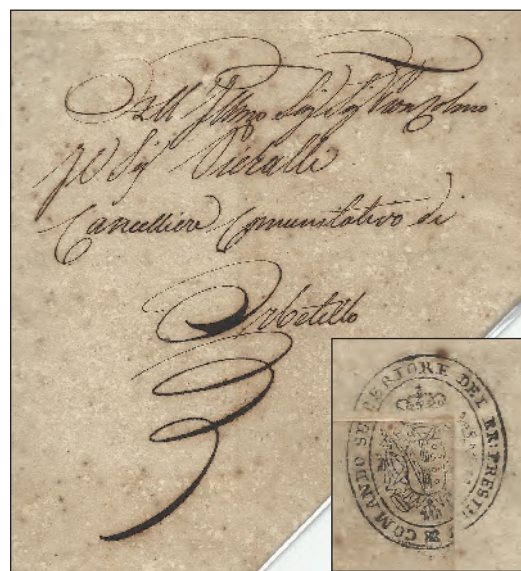 Dell' Illmo Sig Sig Pron Colmo
Il Sig Pieralli
Cancelliere Comunitativo di
Orbetello
COMANDO SUPERIORE DEL RR: PRESID